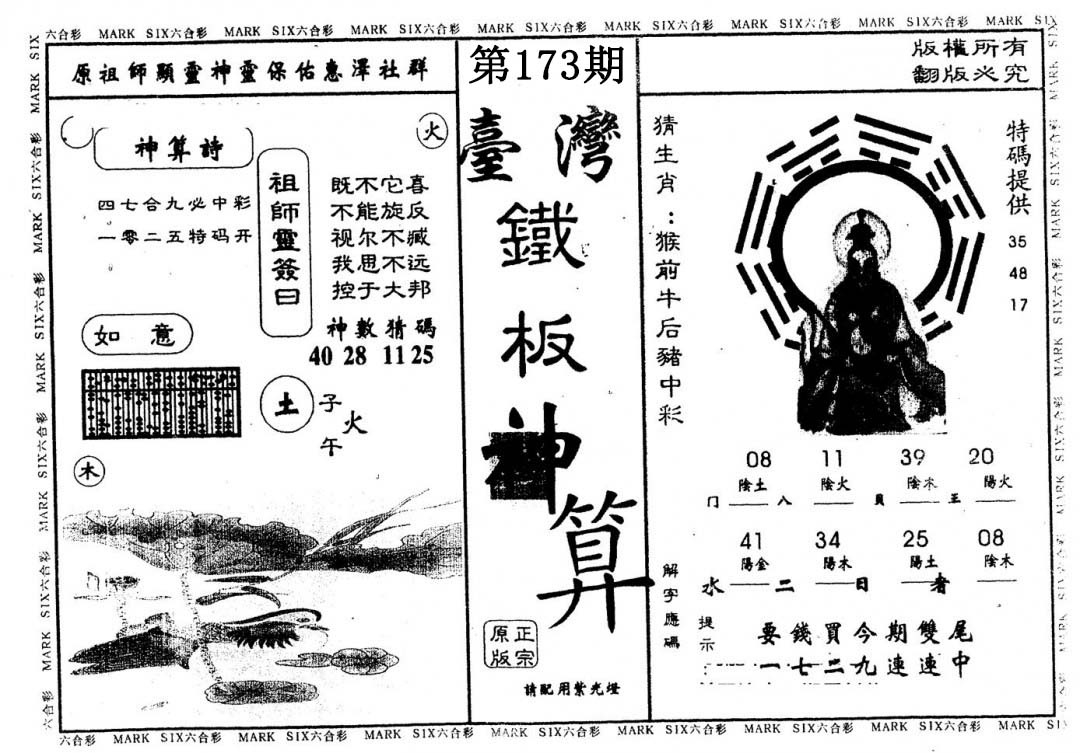 六合彩 MARK SIX六合彩 MARK SIX六合彩 MARK SIX六合彩 MARK SIX六合彩 MARK SIX六合彩 MARK SIX六合彩 MARK SIX六合彩 MARK SIX
原祖師顯靈神靈保佑惠澤社群
第173期
版權所有
翻版必究
火
神算詩
四七合九必中彩
一零二五特码开
祖師靈簽曰
既不它喜
不能旋反
视尔不臧
我思不远
控于大邦
神數猜碼
40 28 11 25
如意
土
子
火
午
木
臺灣
鐵板神算
正宗
原版
請配用紫光燈
猜生肖:猴前牛后豬中彩
特碼提供
35
48
17
08 11 39 20
陰土 陰火 陰木 陽火
门 八 貝 王
41 34 25 08
陽金 陽木 陽土 陰木
水 二 日 者
解字應碼
提示
要錢買今期雙尾
一七二九連連中
六合彩 MARK SIX六合彩 MARK SIX六合彩 MARK SIX六合彩 MARK SIX六合彩 MARK SIX六合彩 MARK SIX六合彩 MARK SIX六合彩 MARK SIX